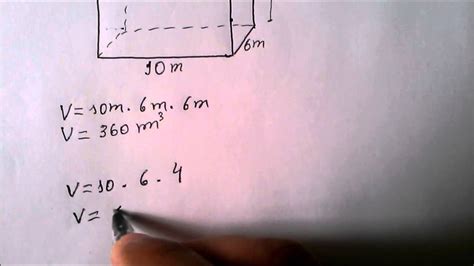 6m
10 m
V = 10m . 6m . 6m
V = 360 m³
V = 10 . 6 . 4
V =